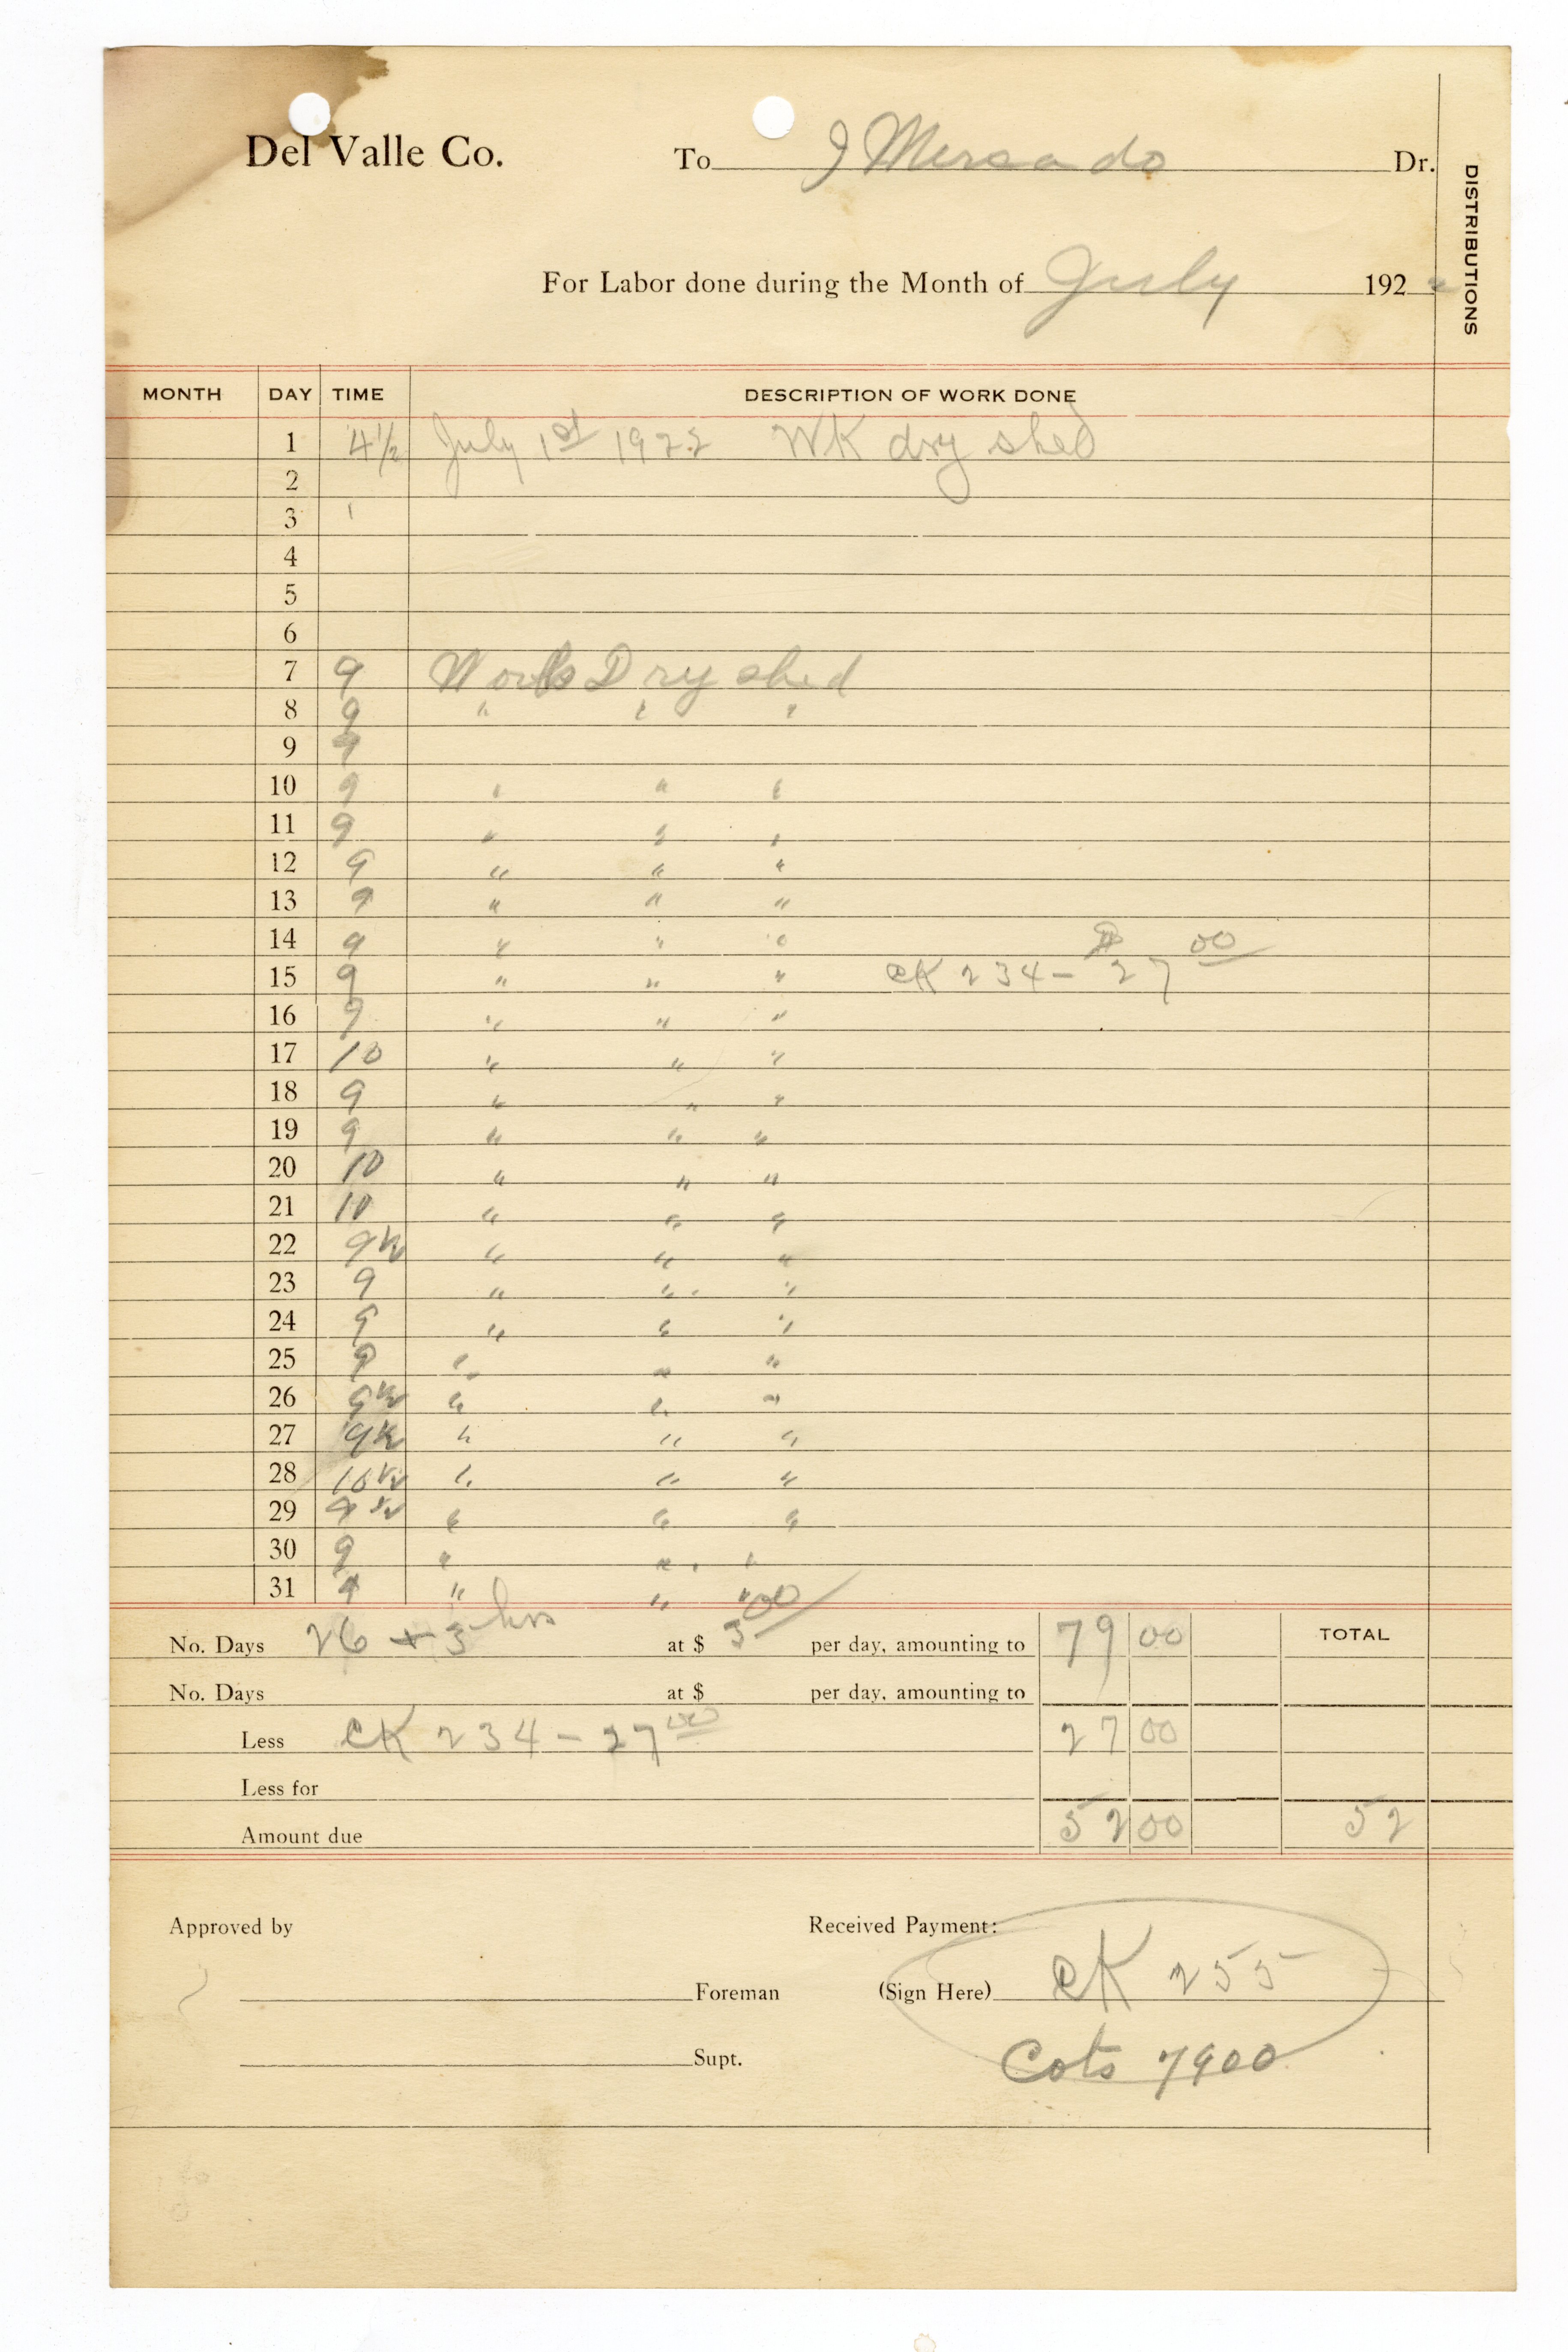 Del Valle Co. To J Mersado Dr.
DISTRIBUTIONS
For Labor done during the Month of July 192
MONTH DAY TIME DESCRIPTION OF WORK DONE
1 4 1/2 July 1st 1922 WK dry shed
2
3
4
5
6
7 9 Work Dry shed
8 9 " " "
9 9
10 9 " " "
11 9 " " "
12 9 " " "
13 9 " " "
14 9 " " "
15 9 " " " CK 234 - $27 00
16 9 " " "
17 10 " " "
18 9 " " "
19 9 " " "
20 10 " " "
21 10 " " "
22 9 1/2 " " "
23 9 " " "
24 9 " " "
25 9 " " "
26 9 1/2 " " "
27 9 1/2 " " "
28 10 1/2 " " "
29 9 1/2 " " "
30 9 " " "
31 9 " " "
No. Days 26 + 3 hrs at $ 3 00 per day, amounting to 79 00 TOTAL
No. Days at $ per day, amounting to
Less CK 234 - 27 00 27 00
Less for
Amount due 52 00 52
Approved by Received Payment:
Foreman (Sign Here) CK 255
Supt. Cots 7900